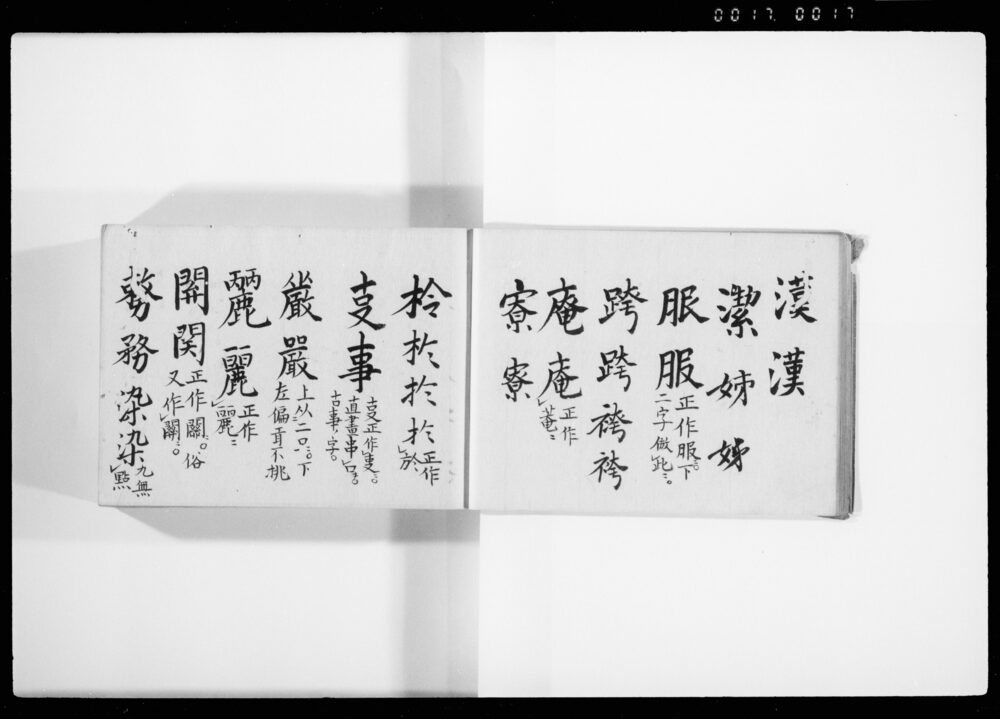 0017 0017
漢 漢
潔 姊 姊
服 服 正作服下二字倣此
跨 跨 袴 袴
庵 庵 正作菴
寮 寮
於 於 於 正作於
叓 事 叓正作叓直畫串口古事字
嚴 嚴 上从二口下左偏耳不挑
麗 麗 正作麗
開 関 正作關俗又作關
務 務 染 染 九無點